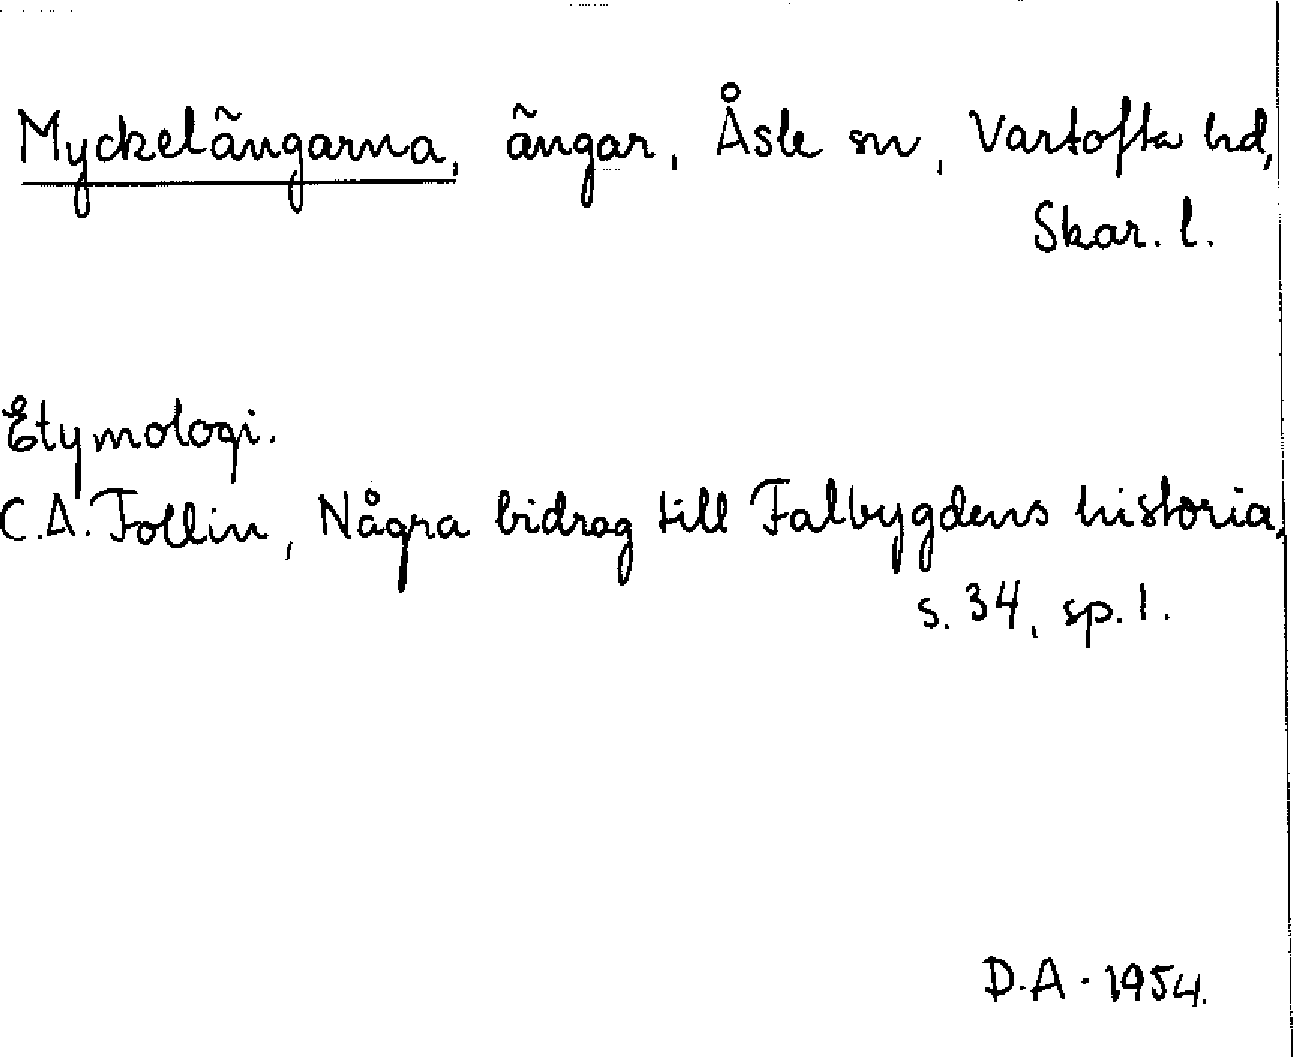 Myckelängarna, ängar, Åsle sn, Vartofta hd,
Skar. l.
Etymologi.
C.A. Follin, Några bidrag till Falbygdens historia,
s. 34, sp. 1.
D.A. 1954.